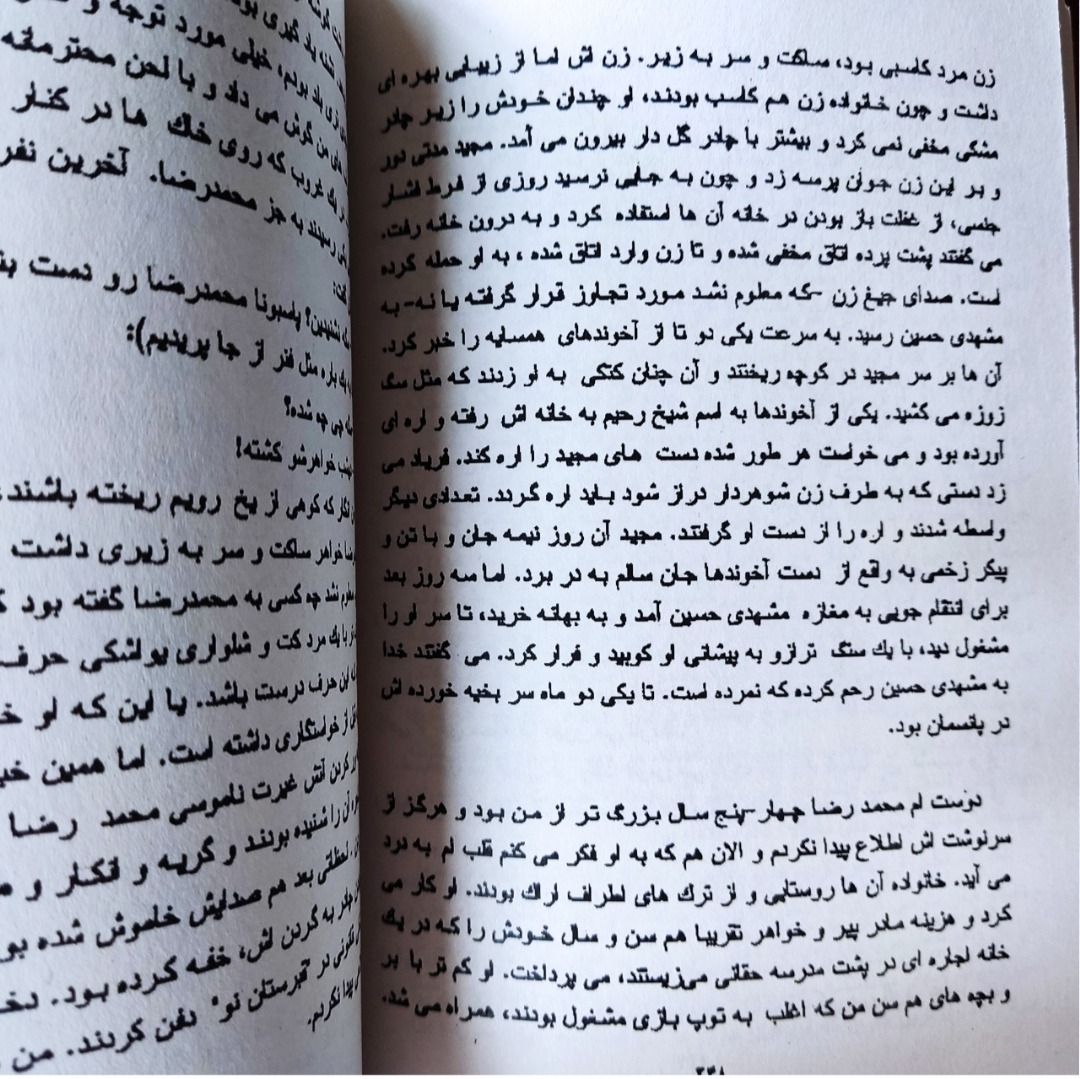 زن مرد کاسبی بود، ساکت و سر به زیر. زن اش اما از زیبایی بهره ای
داشت و چون خانواده زن هم کاسب بودند، او چندان خودش را زیر چادر
مشکی مخفی نمی کرد و بیشتر با چادر گل دار بیرون می آمد. مجید مدتی دور
و بر این زن جوان پرسه زد و چون به جایی نرسید روزی از فرط فشار
جنسی، از غفلت باز بودن در خانه آن ها استفاده کرد و به درون خانه رفت.
می گفتند پشت پرده اتاق مخفی شده و تا زن وارد اتاق شده ، به او حمله کرده
است. صدای جیغ زن -که معلوم نشد مورد تجاوز قرار گرفته یا نه- به
مشهدی حسین رسید. به سرعت یکی دو تا از آخوندهای همسایه را خبر کرد.
آن ها بر سر مجید در کوچه ریختند و آن چنان کتکی به او زدند که مثل سگ
زوزه می کشید. یکی از آخوندها به اسم شیخ رحیم به خانه اش رفته و اره ای
آورده بود و می خواست هر طور شده دست های مجید را اره کند. فریاد می
زد دستی که به طرف زن شوهردار دراز شود باید اره گردد. تعدادی دیگر
واسطه شدند و اره را از دست او گرفتند. مجید آن روز نیمه جان و با تن و
پیکر زخمی به واقع از دست آخوندها جان سالم به در برد. اما سه روز بعد
برای انتقام جویی به مغازه مشهدی حسین آمد و به بهانه خرید، تا سر او را
مشغول دید، با یك سنگ ترازو به پیشانی او کوبید و فرار کرد. می گفتند خدا
به مشهدی حسین رحم کرده که نمرده است. تا یکی دو ماه سر بخیه خورده اش
در پانسمان بود.
دوست ام محمد رضا چهار-پنج سال بزرگ تر از من بود و هرگز از
سرنوشت اش اطلاع پیدا نکردم و الان هم که به او فکر می کنم قلب ام به درد
می آید. خانواده آن ها روستایی و از ترك های اطراف اراك بودند. او کار می
کرد و هزینه مادر پیر و خواهر تقریبا هم سن و سال خودش را که در یك
خانه اجاره ای در پشت مدرسه حقانی می‌زیستند، می پرداخت. او کم تر با بر
و بچه های هم سن من که اغلب به توپ بازی مشغول بودند، همراه می شد.
یاد گیری
تری یاد بودم، خیلی مورد توجه و
های من گوش می داد و با لحن محترمانه
یك غروب که روی خاك ها در کنار
رسیدند به جز محمدرضا. آخرین نفر
گفت:
نشنیدین؟ پاسبونا محمدرضا رو دست
باره مثل فنر از جا پریدیم):
چی چه شده؟
خواهرشو کشته!
انگار که کوهی از یخ رویم ریخته باشند
خواهر ساکت و سر به زیری داشت
معلوم نشد چه کسی به محمدرضا گفته بود
با یك مرد کت و شلواری یواشکی حرف
این حرف درست باشد. یا این که او
از خواستگاری داشته است. اما همین
کردن آتش غیرت ناموسی محمد رضا
آن را شنیده بودند و گریه و انکار و
لحظاتی بعد هم صدایش خاموش شده
چادر به گردن اش، خفه کرده بود.
قانونی در "قبرستان نو" دفن کردند. من
پیدا نکردم.